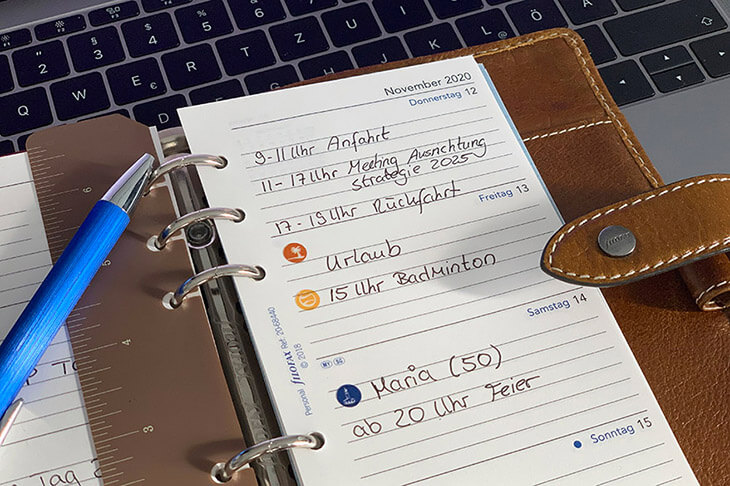 November 2020
Donnerstag 12
9-11 Uhr Anfahrt
11-17 Uhr Meeting Ausrichtung
Strategie 2025
17-19 Uhr Rückfahrt
Freitag 13
Urlaub
15 Uhr Badminton
Samstag 14
Maria (50)
ab 20 Uhr Feier
Sonntag 15
Personal filofax Ref. 2068440
© 2018
MY SG
filofax
6
5
4
3
Tag
2
3
4
5
6
7
8
9
0
Q
W
E
€
R
T
Z
U
I
O
P
Ü
S
D
F
G
H
J
K
L
Ö
Ä